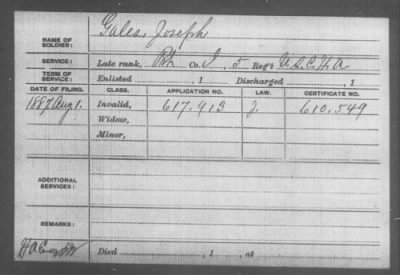 NAME OF SOLDIER: Gales, Joseph
SERVICE: Late rank, Pvt Co. I, 5 Reg't U.S.C.H.A
TERM OF SERVICE: Enlisted , 1 Discharged , 1
DATE OF FILING. CLASS. APPLICATION NO. LAW. CERTIFICATE NO.
1887 Aug 1. Invalid, 617.913 J. 610.549
Widow,
Minor,
ADDITIONAL SERVICES:
REMARKS:
Died , 1 , at